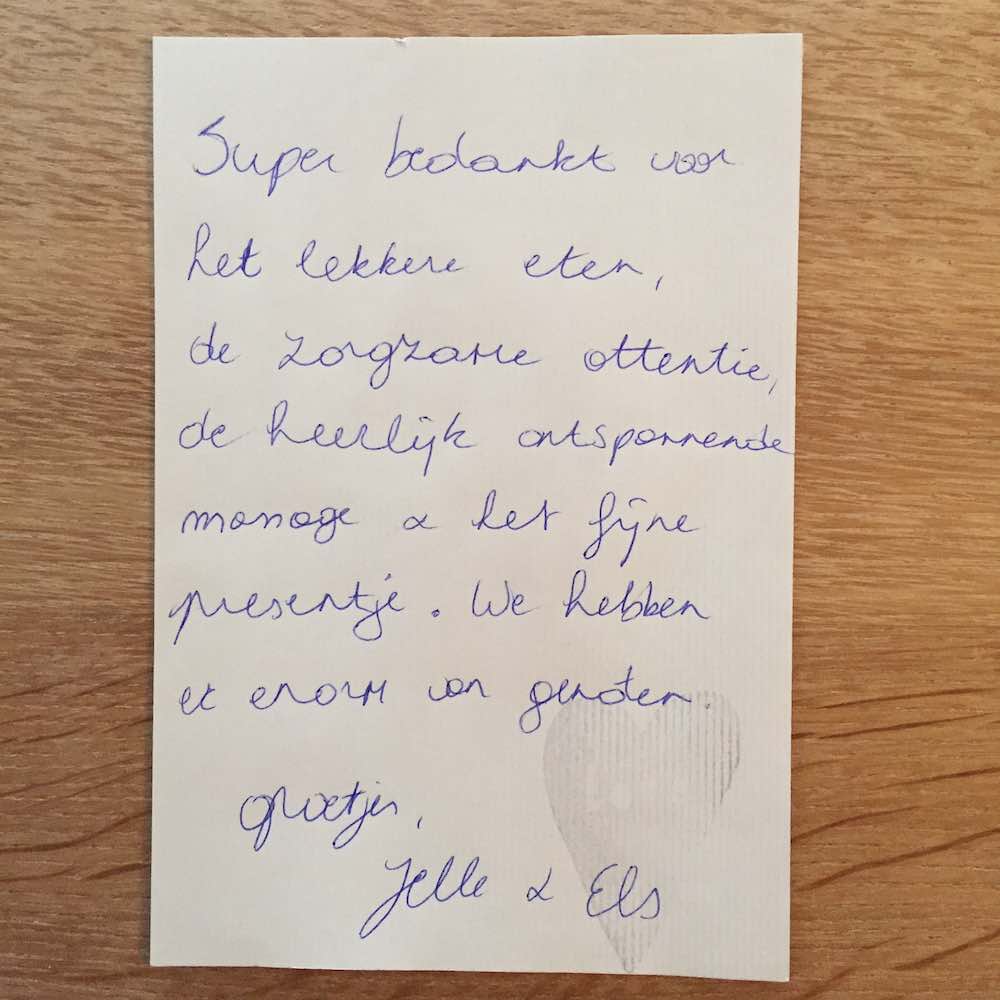 Super bedankt voor
het lekkere eten,
de zorgzame attentie,
de heerlijk ontspannende
massage & het fijne
presentje. We hebben
er enorm van genoten.
Groetjes,
Jelle & Els